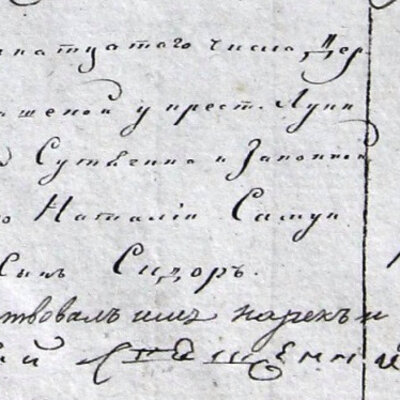 натцатого числа, Дер
шеной у крест. Луки
Сутягина и Законной
Наталiи Самуи
Сынъ Сидоръ.
твовалъ имъ нарекъ и
й Священни